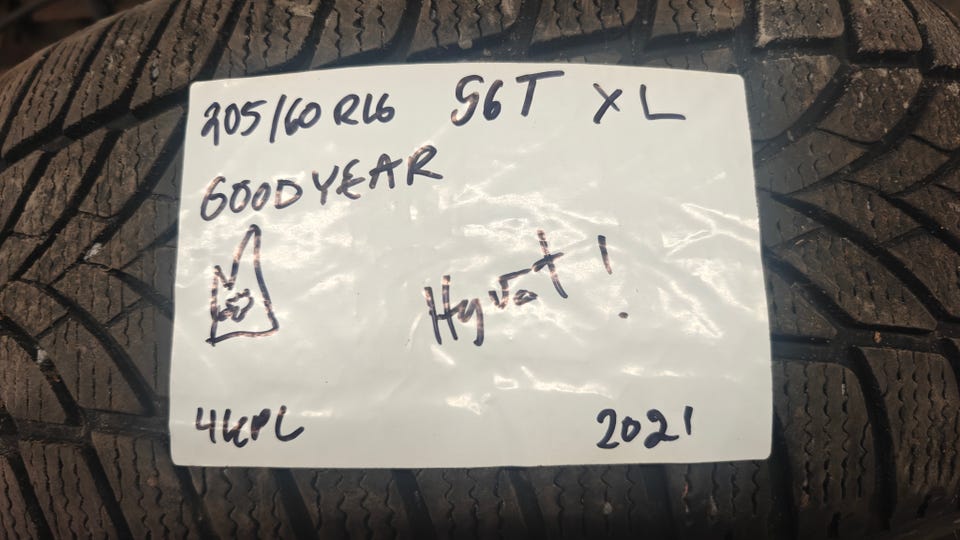 205/60 R16 96T XL
GOODYEAR
Hyvät!
4KPL 2021